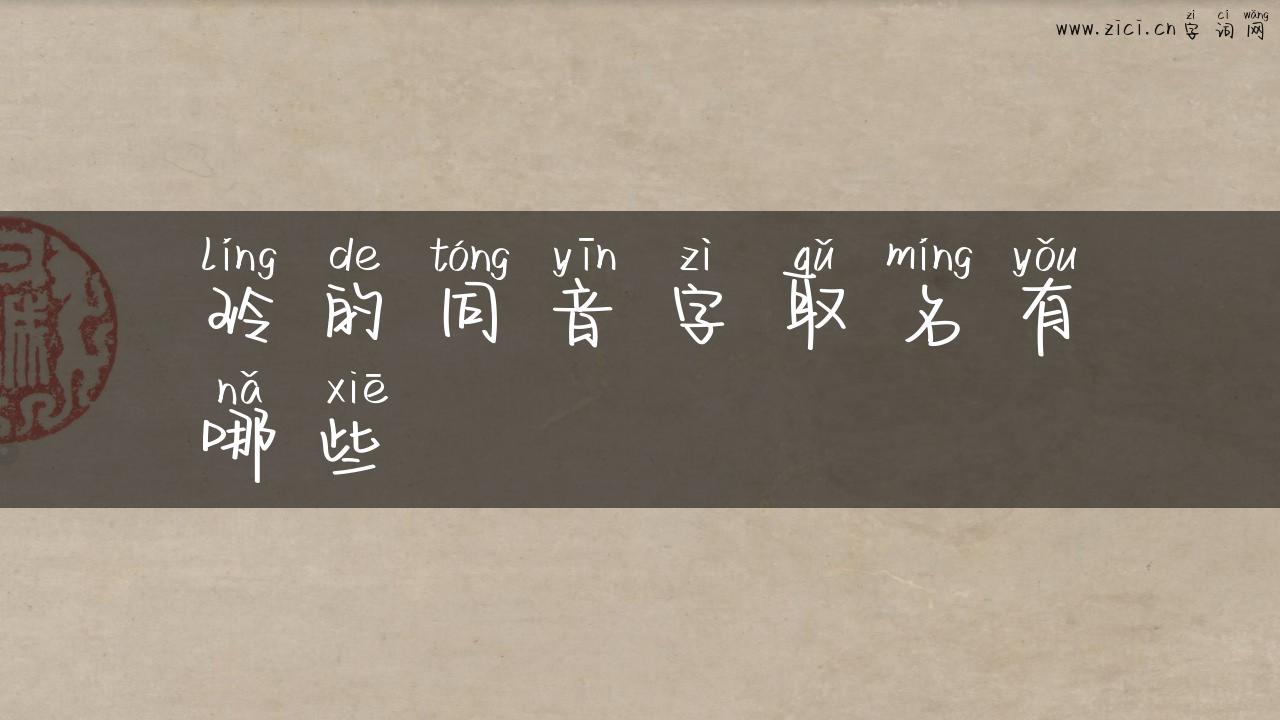 zì cí wǎng
www.zici.cn 字词网
líng de tóng yīn zì qǔ míng yǒu
玲的同音字取名有
nǎ xiē
哪些